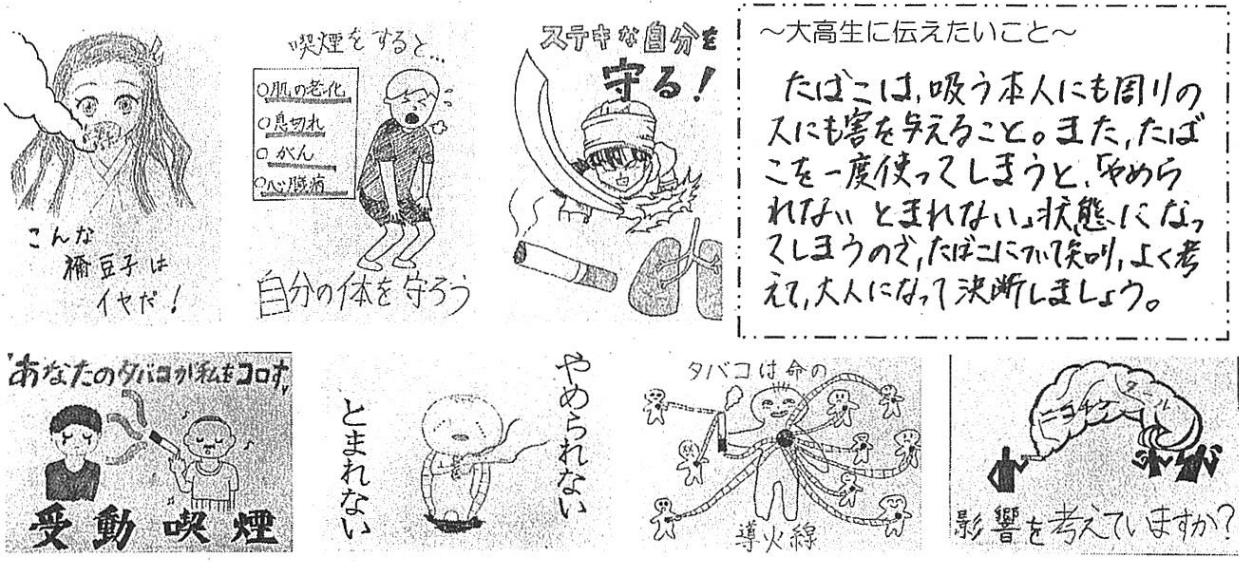 こんな
禰豆子は
イヤだ！
喫煙をすると…
○肌の老化
○息切れ
○がん
○心臓病
自分の体を守ろう
ステキな自分を
守る！
～大高生に伝えたいこと～
たばこは,吸う本人にも周りの
人にも害を与えること。また,たば
こを一度使ってしまうと,「やめら
れない とまれない」状態になっ
てしまうので,たばこについて知り,よく考
えて,大人になって決断しましょう。
"あなたのタバコが私をコロす"
受動喫煙
やめられない
とまれない
タバコは命の
導火線
ニコチン
タール
影響を考えていますか?